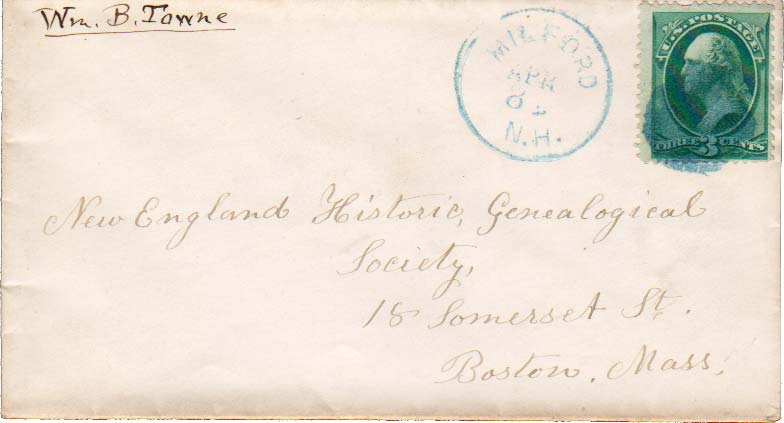 Wm. B. Towne
MILFORD
APR
N.H.
U.S. POSTAGE
THREE 3 CENTS
New England Historic, Genealogical
Society,
18 Somerset St.
Boston, Mass.